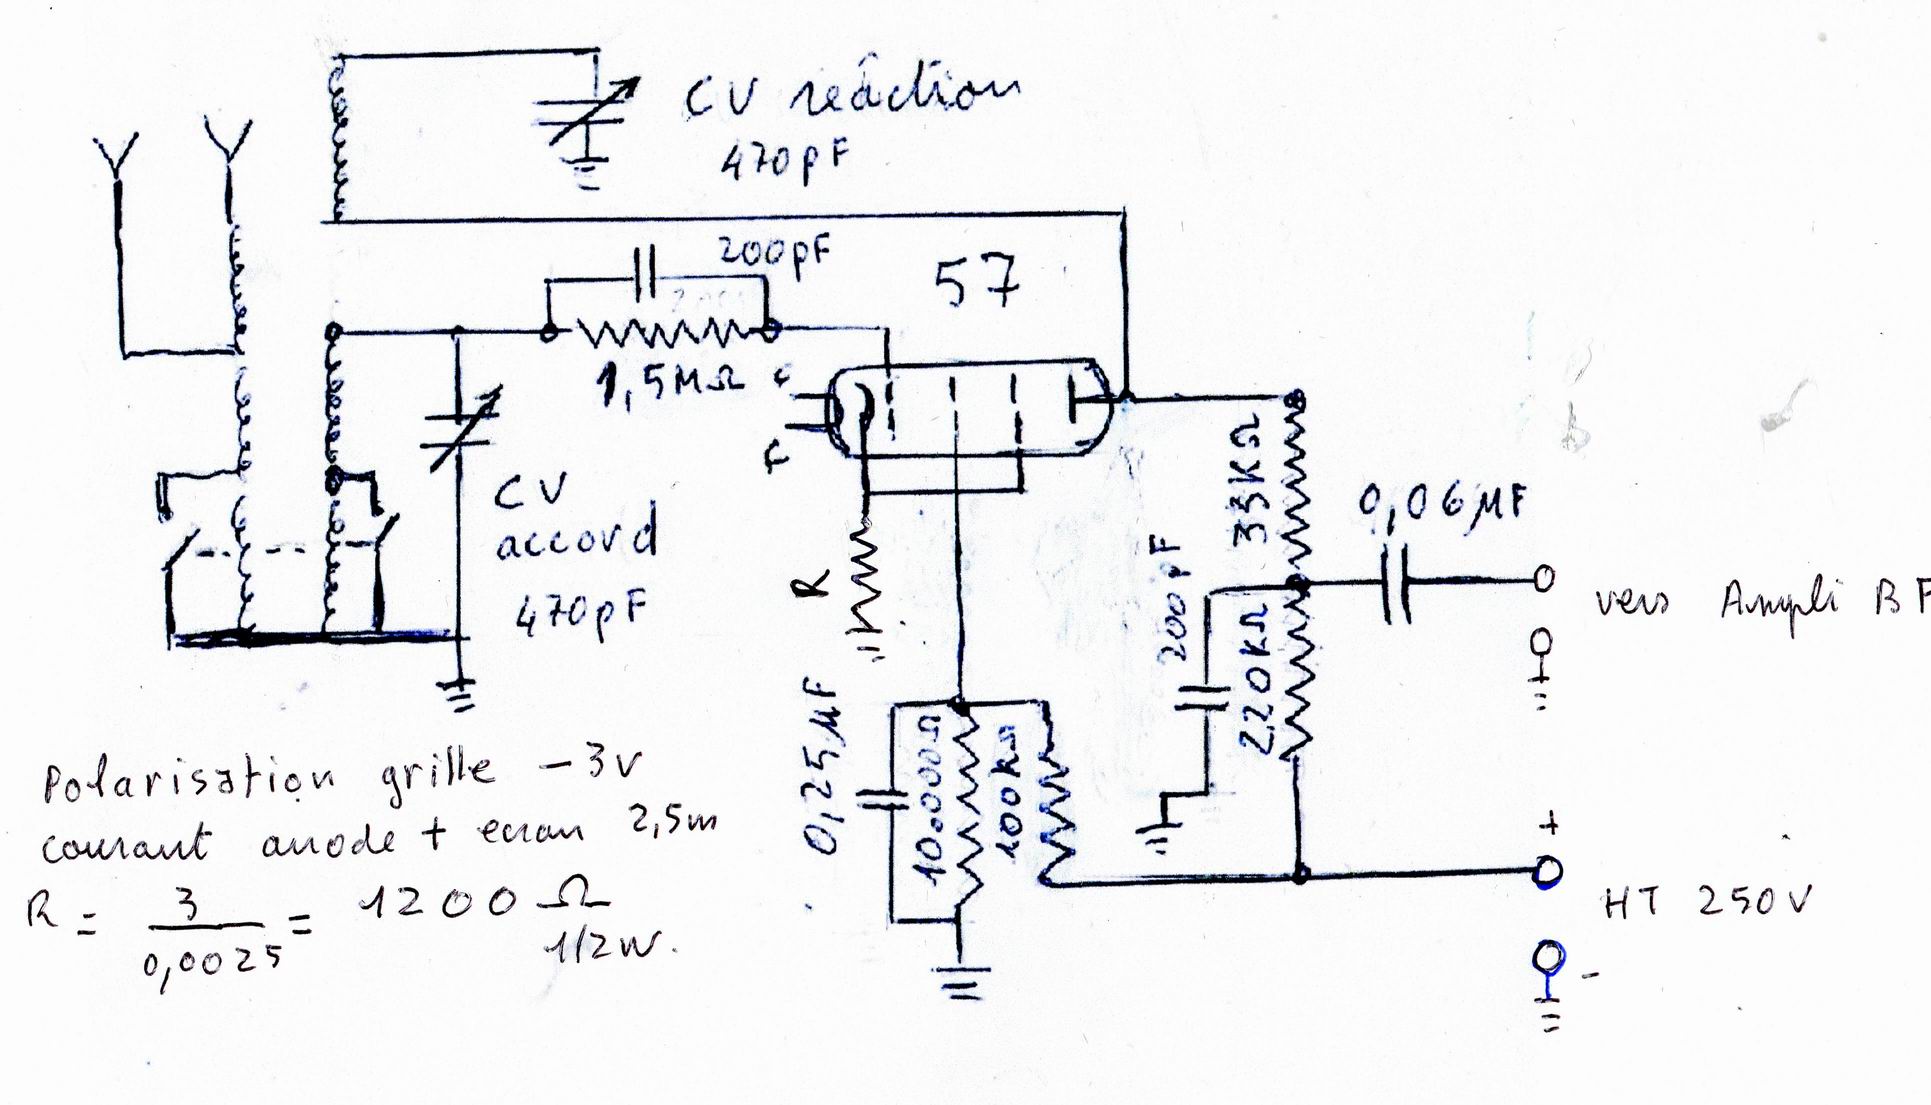 CV réaction
470pF
200pF
57
1,5MΩ
f
f
CV
accord
470pF
R
33KΩ
0,06µF
200pF
220KΩ
vers Ampli BF
0,25µF
10.000Ω
100KΩ
+
HT 250V
-
Polarisation grille -3v
courant anode + ecran 2,5m
R = 3 / 0,0025 = 1200 Ω
1/2W.